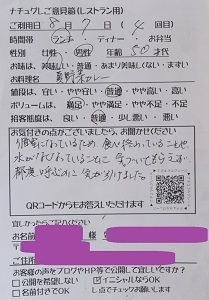 ナチュグしご意見箱(レストラン用)
ご利用日 8月7日(4回目)
時間帯 ランチ・ティナー・お弁当
性別 女性・男性 年齢 50才代
お味は、美味しい・普通・あまり美味しくない・まずい
お料理名 カレー
値段は、安い・やや安い・普通・やや高い・高い
ボリュームは、満足・やや満足・やや不足・不足
接客態度は、良い・普通・少し悪い・悪い
お気付きの点がございましたら、お聞かせください
個室になっているため、食べ終っていることや
水がけれていることに気づいてもらえず
都度呼ぶのに気が引けました。
QRコードからもお答えいただけます
宜しかったらご記入ください
お名前 様
〒
ご住所
お客様の声をブログやHP等で公開して宜しいですか?
□公開を希望しない ☑イニシャルならOK
□名前付きでOK し点でチェックお願いします